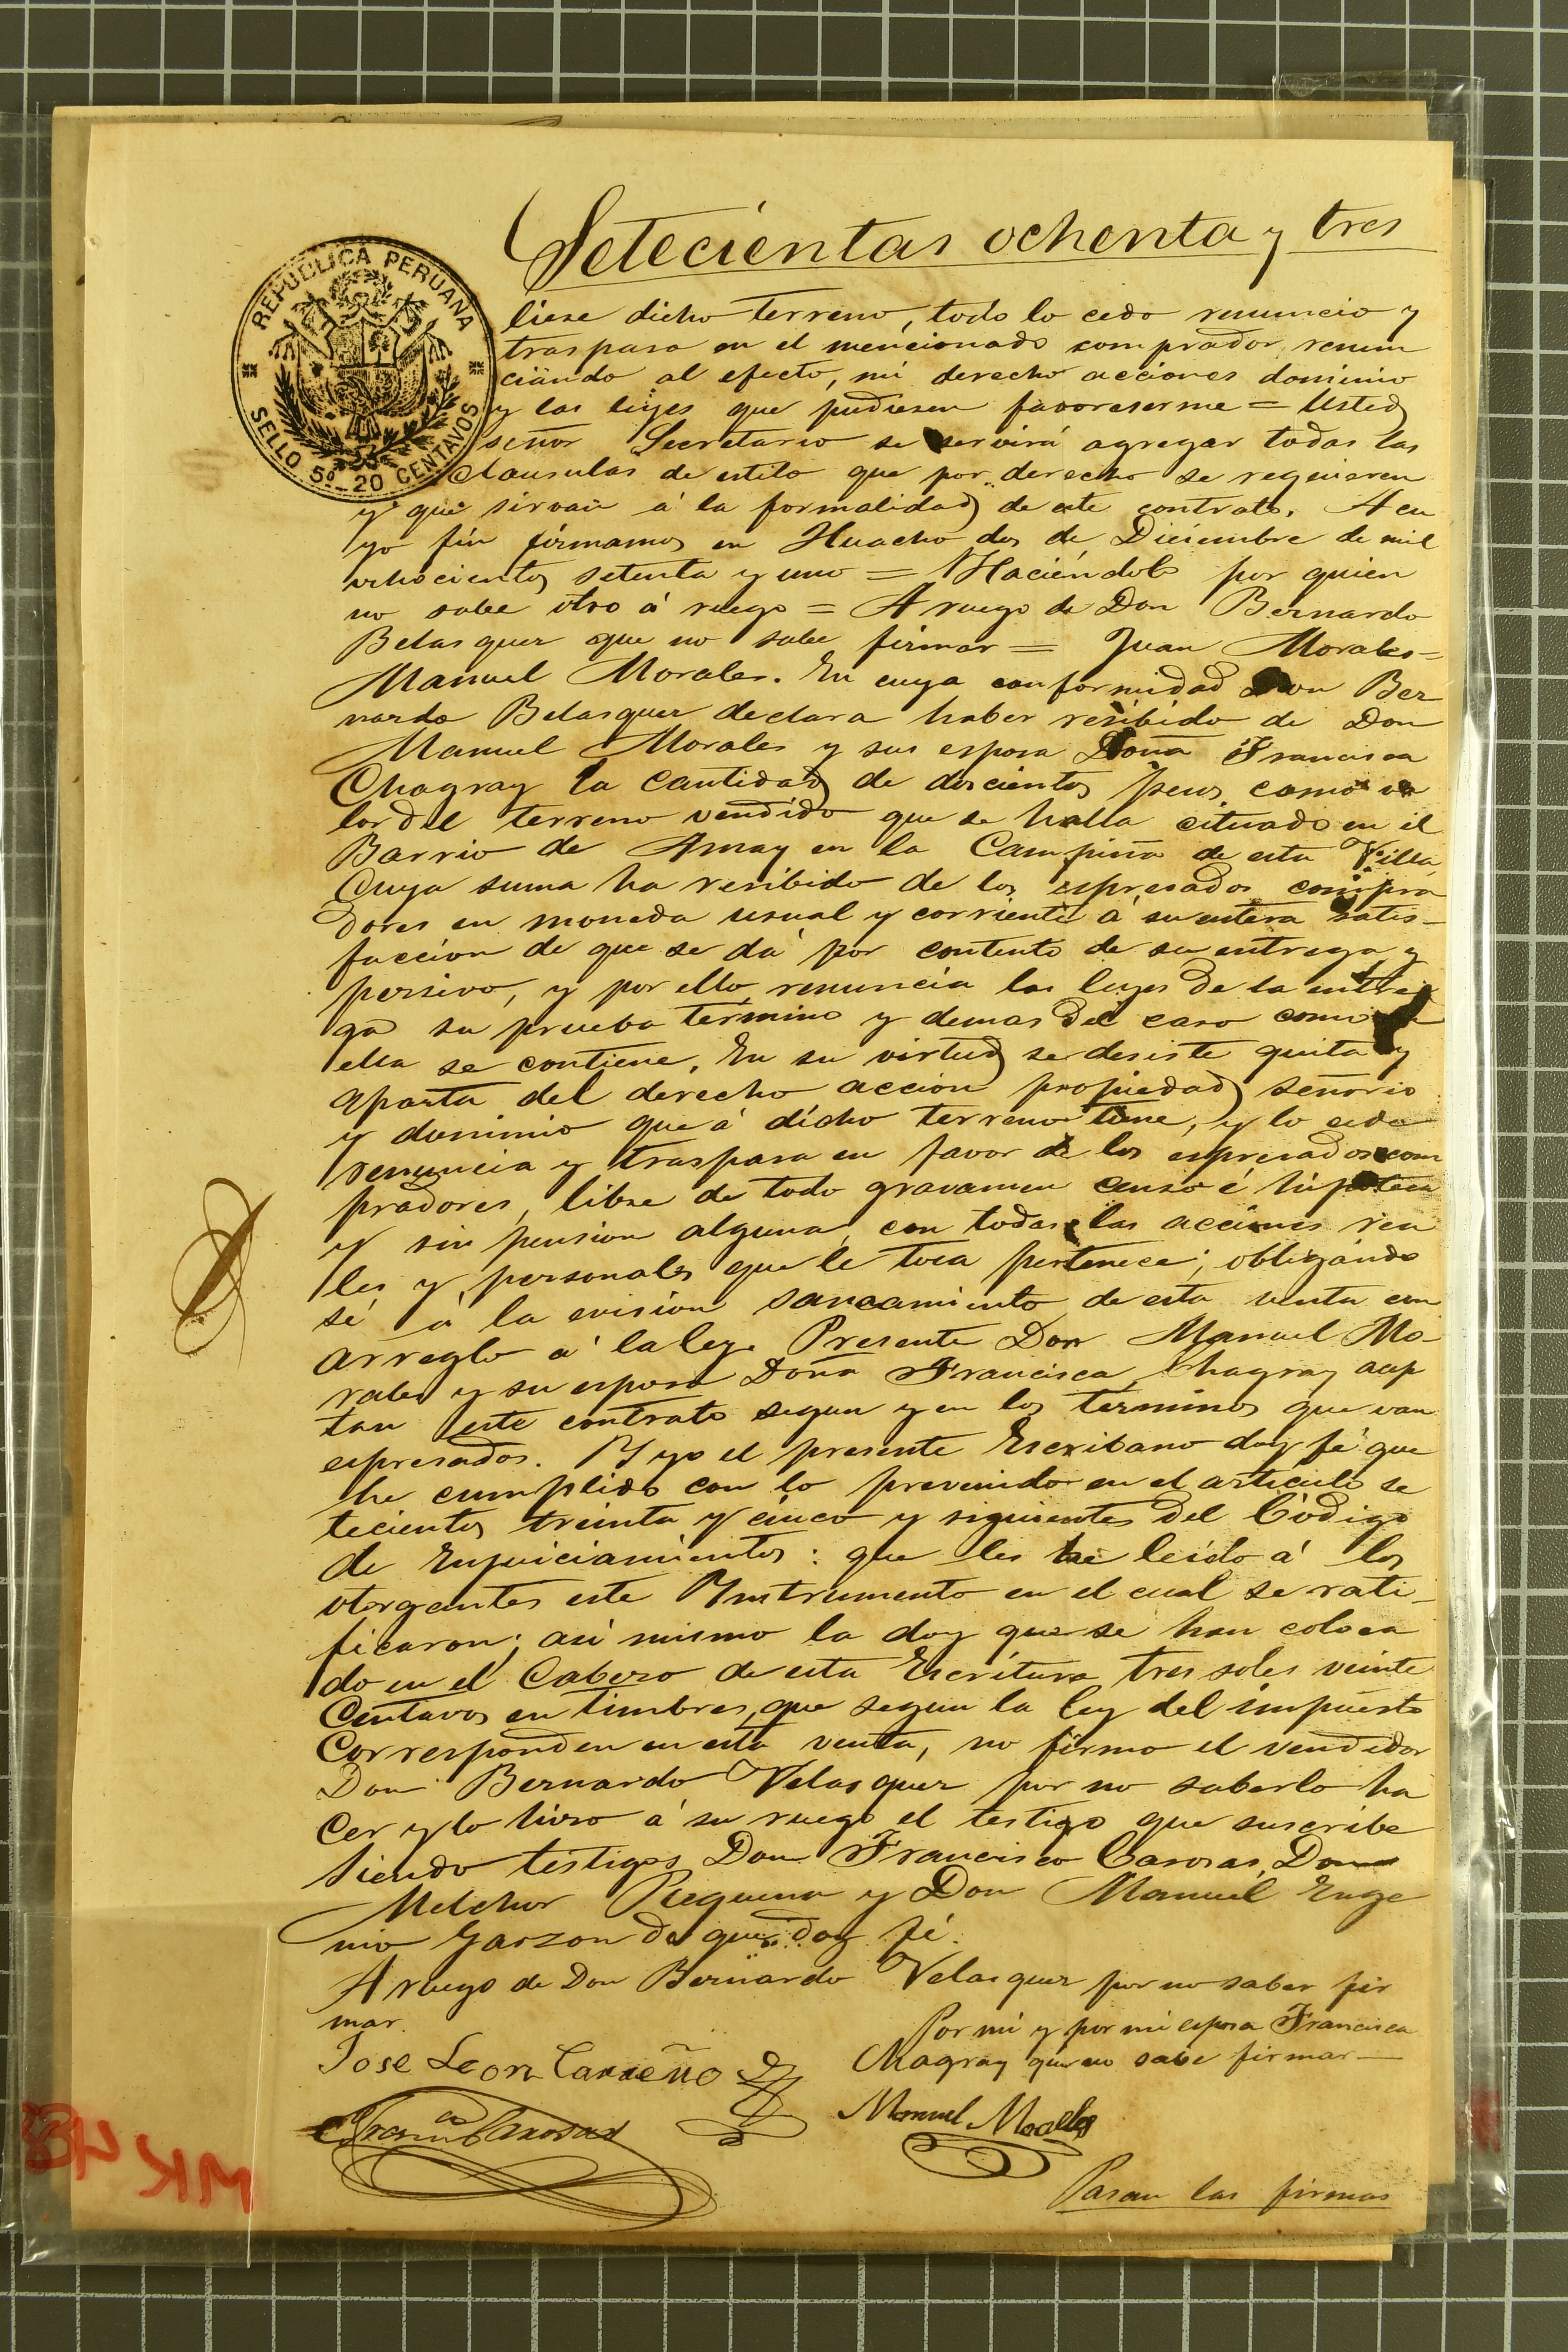 Setecientas ochenta y tres
REPUBLICA PERUANA
SELLO 5º_20 CENTAVOS
liese dicho terreno, todo lo cedo renuncio y
traspaso en el mencionado comprador, renun
ciando al efecto, mi derecho acciones dominio
y las leyes que pudiesen favoreserme = Usted
señor Secretario se servirá agregar todas las
clausulas de estilo que por derecho se requieren
y que sirvan á la formalidad de este contrato. A cu
yo fin firmamos en Huacho dos de Diciembre de mil
ochocientos setenta y uno = Haciéndolo por quien
no sabe otro á ruego = A ruego de Don Bernardo
Belasquez que no sabe firmar = Juan Morales =
Manuel Morales. En cuya conformidad Don Ber
nardo Belasquez declara haber resibido de Don
Manuel Morales y sus esposa Doña Francisca
Chagray la cantidad de doscientos pesos como va
lor del terreno vendido que se halla cituado en el
Barrio de Amay en la Campiña de esta Villa,
Cuya suma ha resibido de los espresados compra
dores en moneda usual y corriente á su entera satis-
faccion de que se dá por contento de su entrega y
persivo, y por ello renuncia las leyes de la entre
ga su prueba término y demas del caso como en
ella se contiene. En su virtud se desiste quita y
aparta del derecho acción propiedad señorio
y dominio que á dicho terreno tiene, y lo cede
renuncia y traspasa en favor de los espresados com
pradores, libre de todo gravamen censo é hipoteca
y sin pension alguna, con todas las acciones rea
les y personales que le toca pertenece; obligándo
sé á la evision saneamiento de esta venta con
arreglo á la ley. Presente Don Manuel Mo-
rales y su esposa Doña Francisca Chagray acep
tan este contrato segun y en los terminos que van
espresados. Y yo el presente Escribano doy fé que
he cumplido con lo prevenido en el articulo se
tecientos treinta y cinco y siguientes del Código
de Enjuiciamientos: que les he leido á los
otorgantes este Ynstrumento en el cual se rati-
ficaron; asi mismo la doy que se han coloca
do en el Cabezo de esta Escritura tres soles veinte
Centavos en timbres, que segun la ley del impuesto
Corresponden en esta venta, no firmo el vendedor
Don Bernardo Velasquez por no saberlo ha
cer y lo hizo á su ruego el testigo que suscribe
siendo testigos Don Francisco Casosas, Don
Melchor Requena y Don Manuel Euge
nio Garzon de que doy fé.
A ruego de Don Bernardo Velasquez por no saber fir
mar.
Por mi y por mi esposa Francisca
Chagray que no sabe firmar—
Jose Leon Carreño
Manuel Morales
Pasan las firmas
MK 48